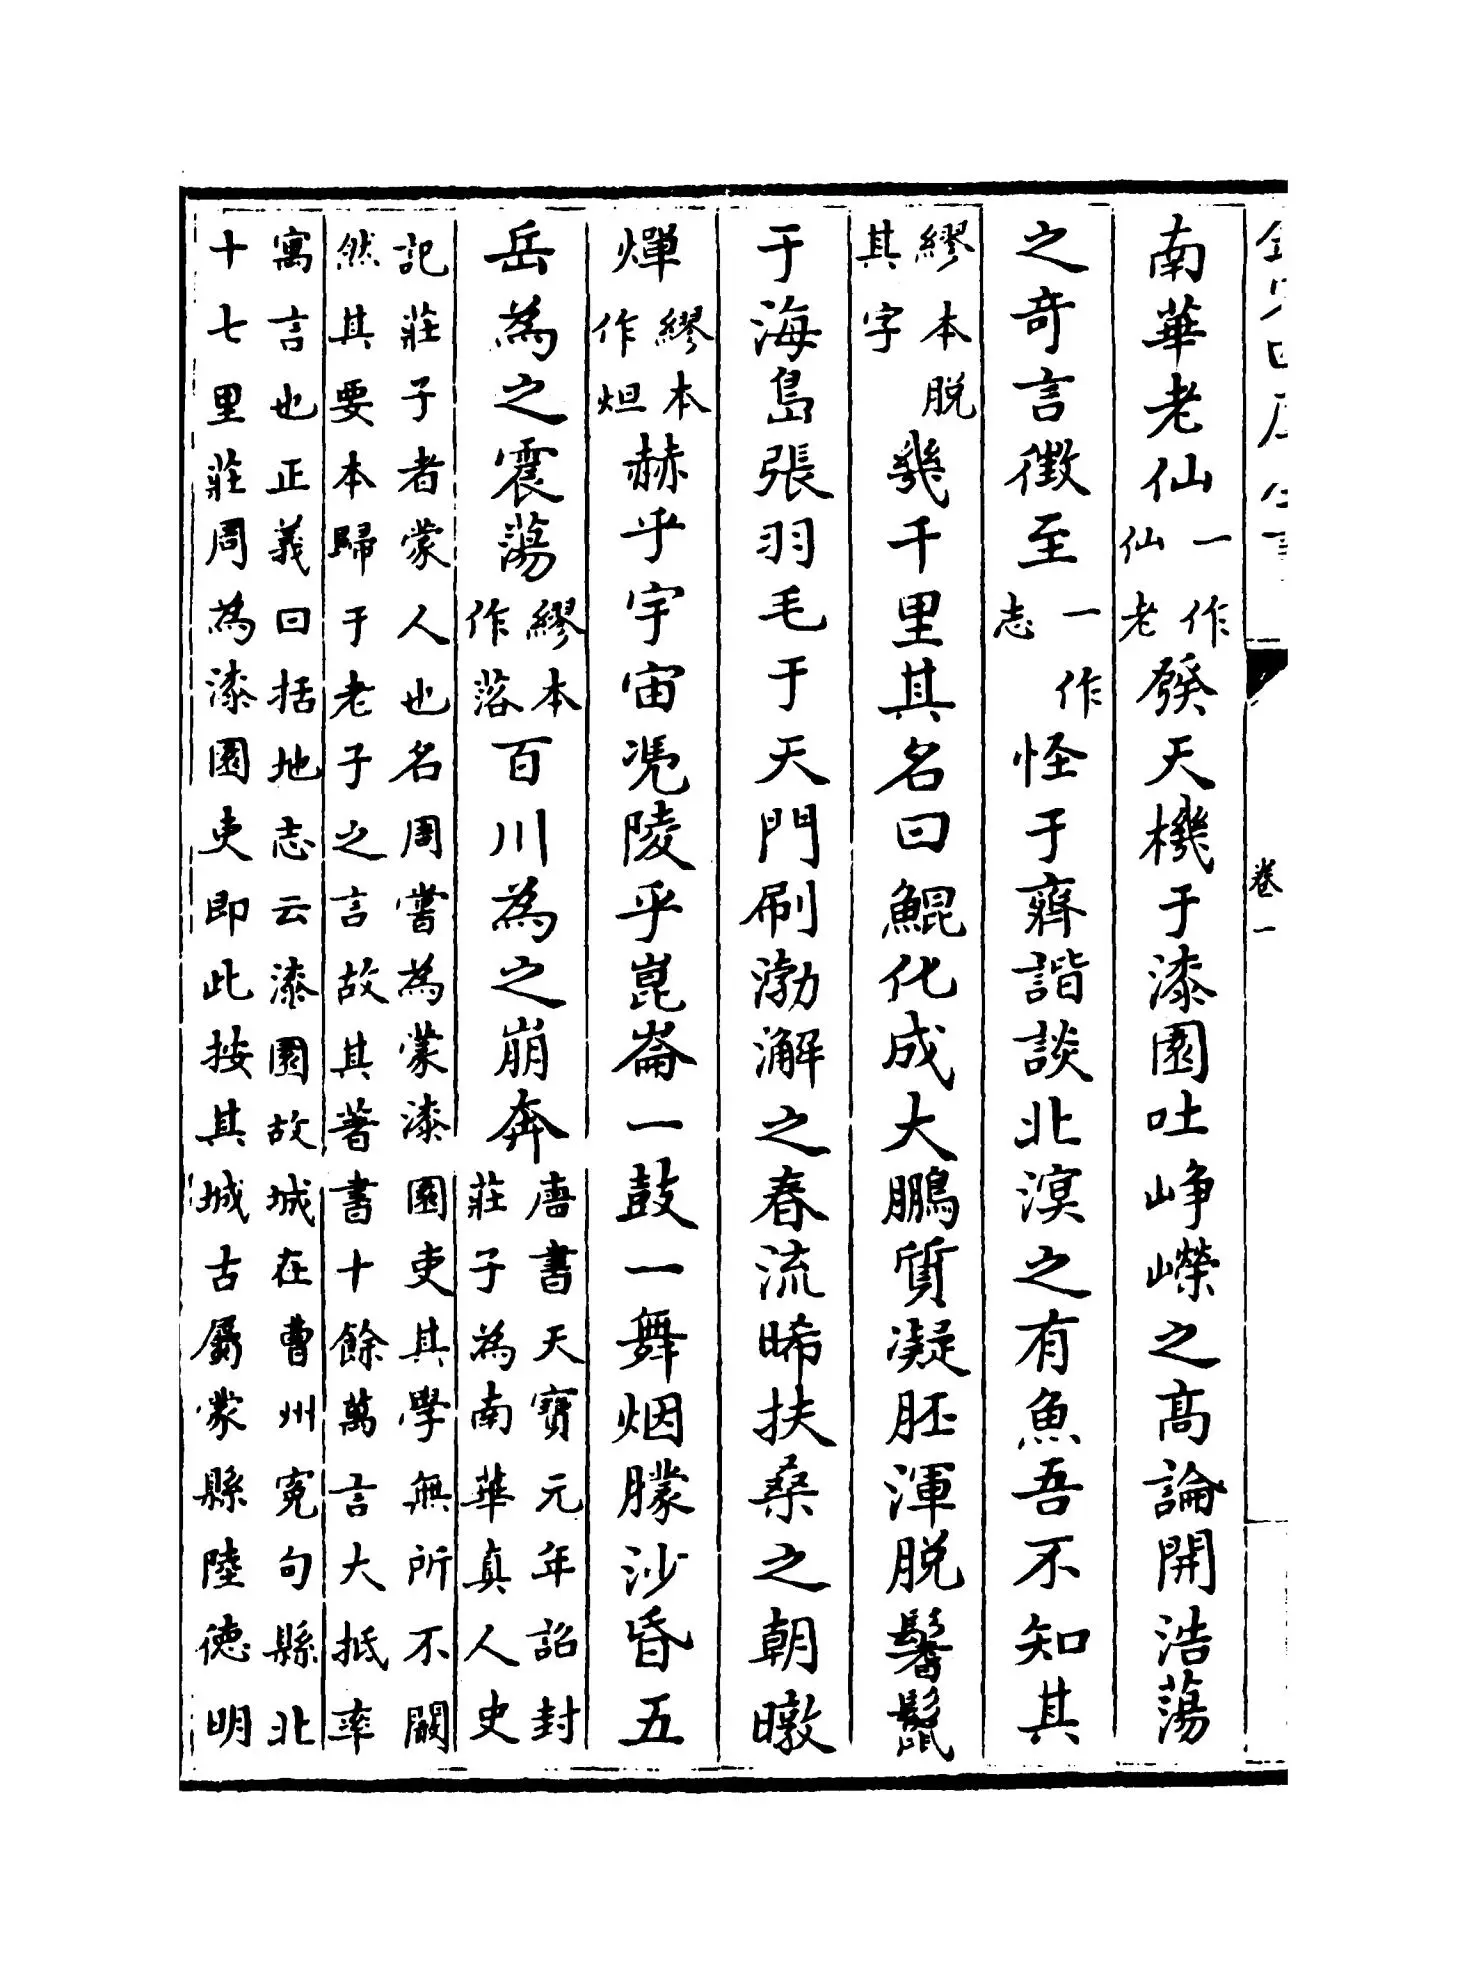 卷一
南華老仙一作仙老發天機于漆園吐崢嶸之髙論開浩蕩
之奇言徵至一作志怪于齊諧談北溟之有魚吾不知其
繆本脱其字幾千里其名曰鯤化成大鵬質凝胚渾脱鬐鬣
于海島張羽毛于天門刷渤澥之春流晞扶桑之朝暾
燀繆本作烜赫乎宇宙凴陵乎崑崙一鼓一舞烟朦沙昏五
岳為之震蕩繆本作落百川為之崩奔唐書天寶元年詔封莊子為南華真人史
記莊子者蒙人也名周嘗為蒙漆園吏其學無所不闚
然其要本歸于老子之言故其著書十餘萬言大抵率
寓言也正義曰括地志云漆園故城在曹州寃句縣北
十七里莊周為漆園吏即此按其城古屬蒙縣陸徳明